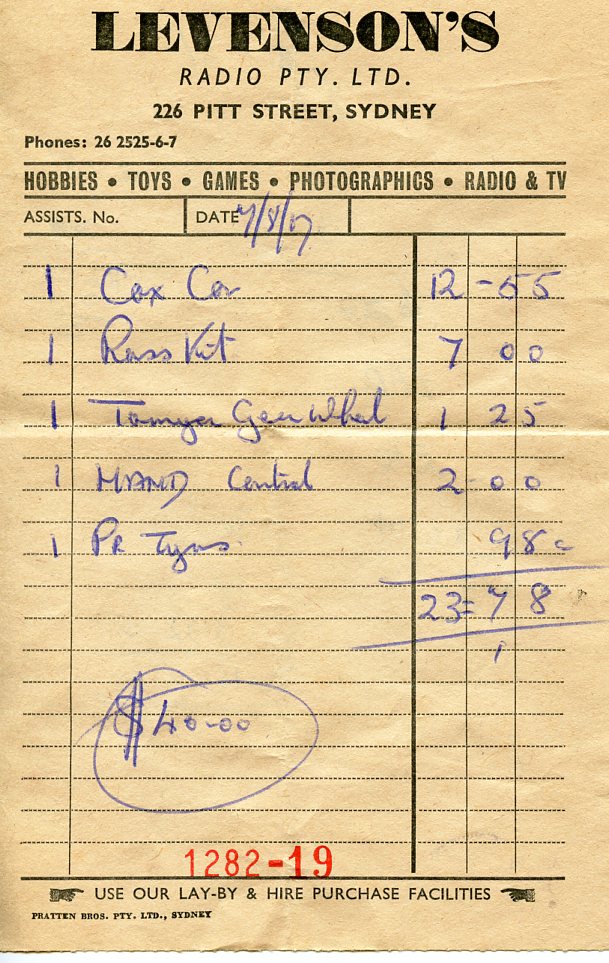 LEVENSON'S
RADIO PTY. LTD.
226 PITT STREET, SYDNEY
Phones: 26 2525-6-7
HOBBIES • TOYS • GAMES • PHOTOGRAPHICS • RADIO & TV
ASSISTS. No. DATE
1 Cox Car 12-55
1 Russ Kit 7 00
1 Gear Wheel 1 25
1 HAND Control 2-00
1 PR Tyres. 98c
23=78
1
$40-00
1282-19
USE OUR LAY-BY & HIRE PURCHASE FACILITIES
PRATTEN BROS. PTY. LTD., SYDNEY